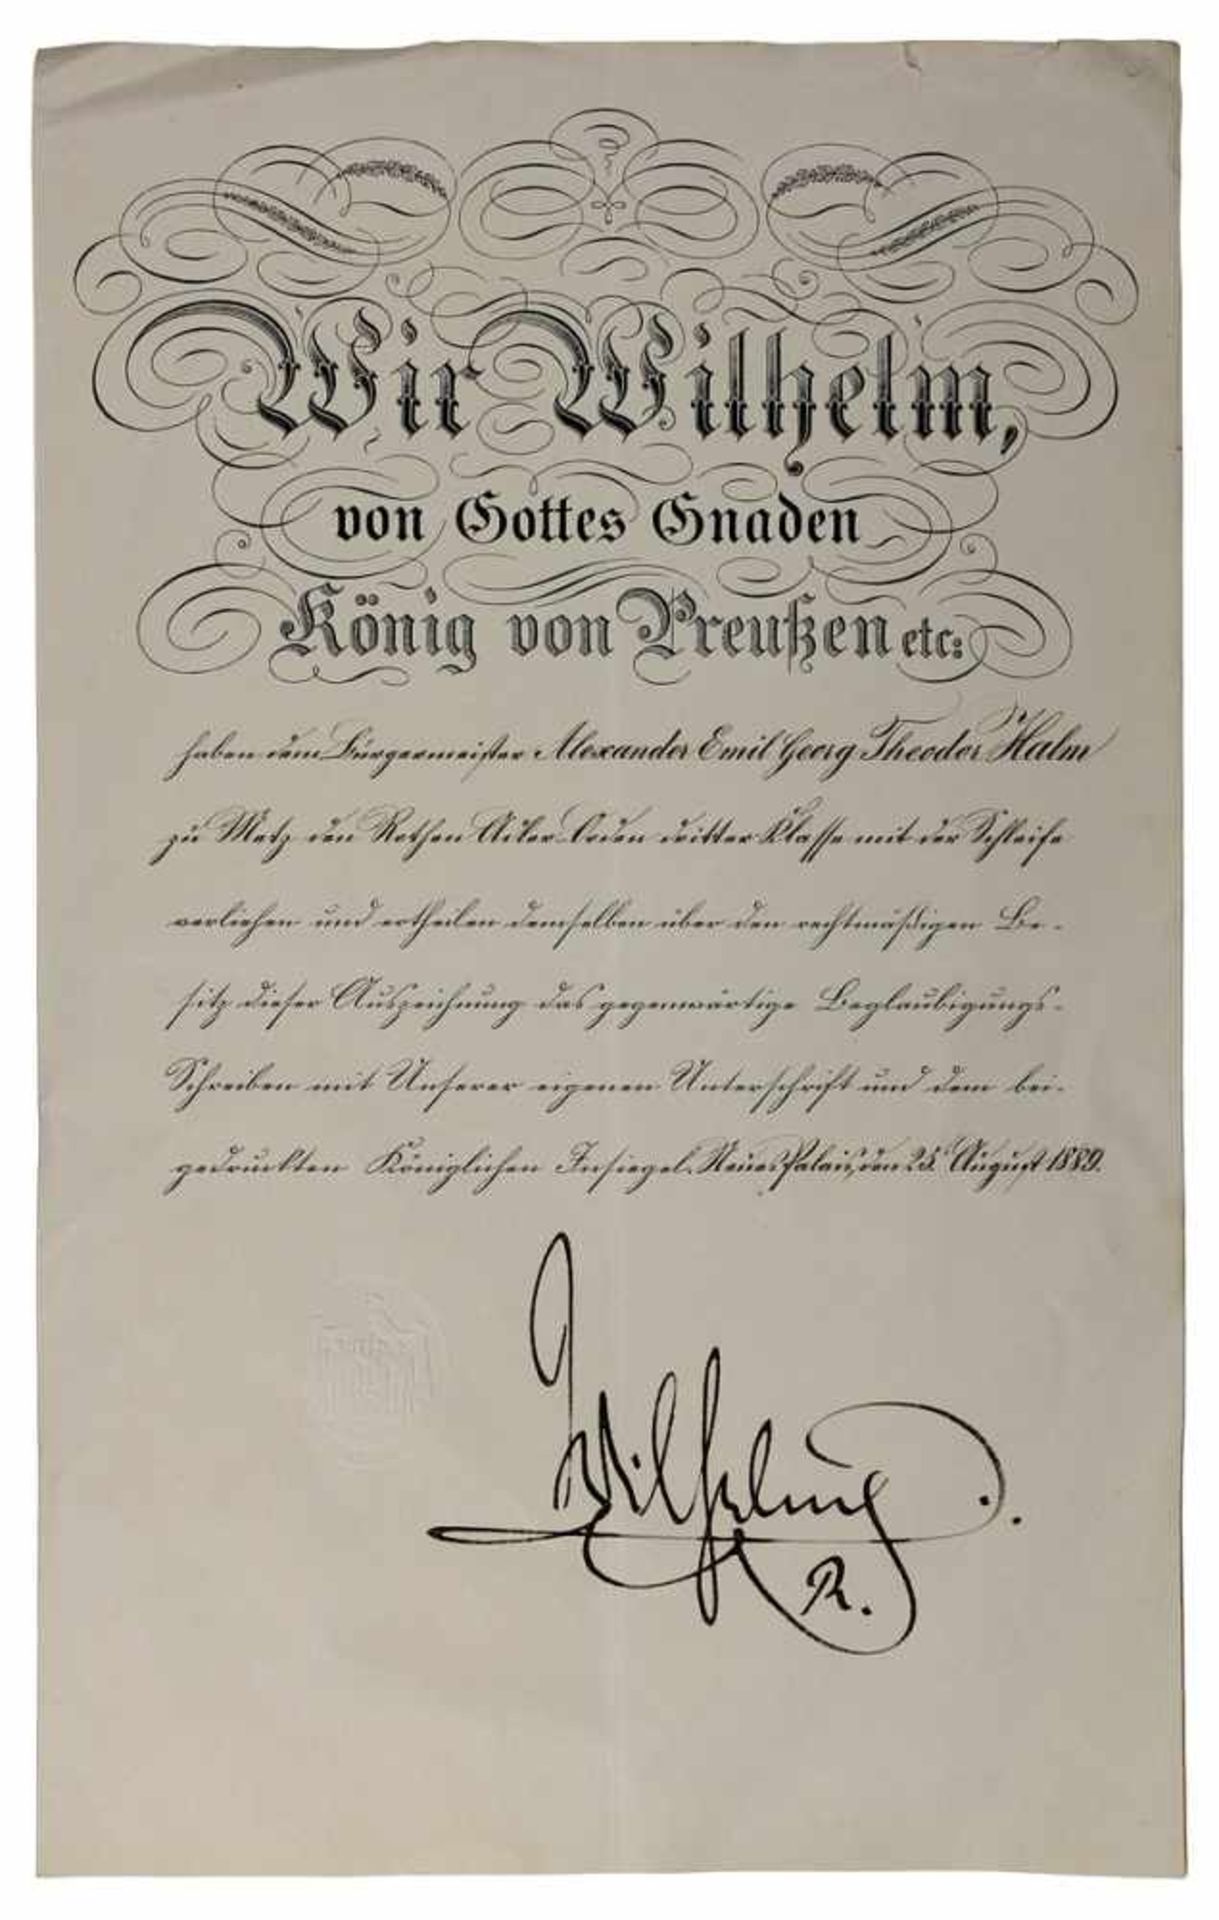 Wir Wilhelm,
von Gottes Gnaden
König von Preußen etc:
haben dem Bürgermeister Alexander Emil Georg Theodor Halm
zu Metz den Rothen Adler-Orden dritter Klasse mit der Schleife
verliehen und ertheilen demselben über den rechtmäßigen Be-
sitz dieser Auszeichnung das gegenwärtige Beglaubigungs-
Schreiben mit Unserer eigenen Unterschrift und dem bei-
gedruckten Königlichen Insiegel. Neues Palais, den 25. August 1889.
Wilhelm
R.